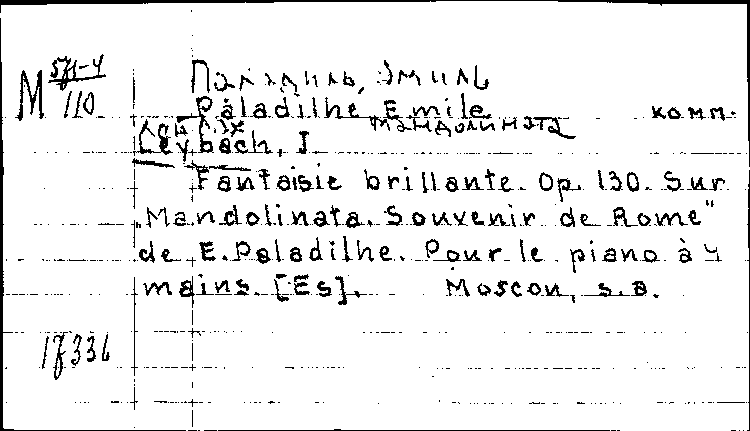 M 571-4/110
Паладиль, Эмиль
Paladilhe Emile комм.
мандолината
Лейбах
Leybach, I.
Fantaisie brillante. Op. 130. Sur
„Mandolinata. Souvenir de Rome"
de E. Paladilhe. Pour le piano à 4
mains. [Es]. Moscou, s.a.
17336